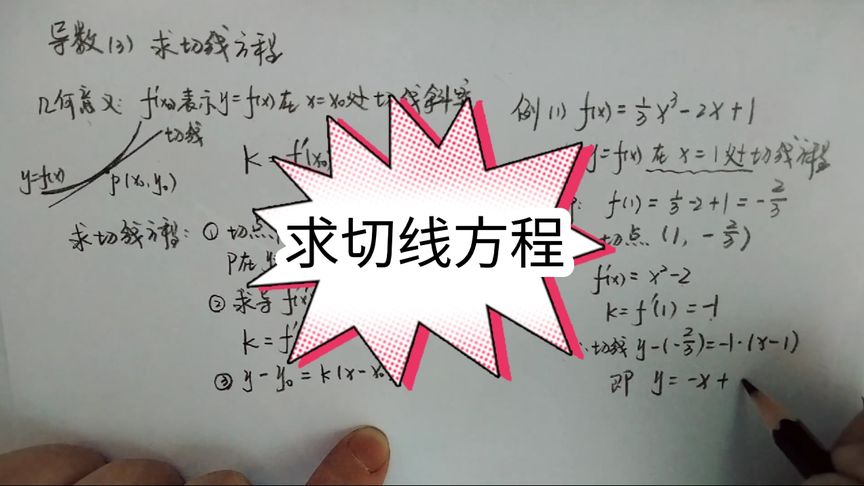 导数(3) 求切线方程
几何意义: f'(x₀)表示y=f(x)在x=x₀处切线斜率
切线
y=f(x)
P(x₀,y₀)
k=f'(x₀
求切线方程: ① 切点
P在
② 求导 f'(x
k=f'
③ y-y₀=k(x-x₀
求切线方程
例(1) f(x)=⅓x³-2x+1
y=f(x)在x=1处切线方程
f(1)=⅓-2+1=-⅔
切点(1,-⅔)
f'(x)=x²-2
k=f'(1)=-1
∴切线 y-(-⅔)=-1·(x-1)
即 y=-x+